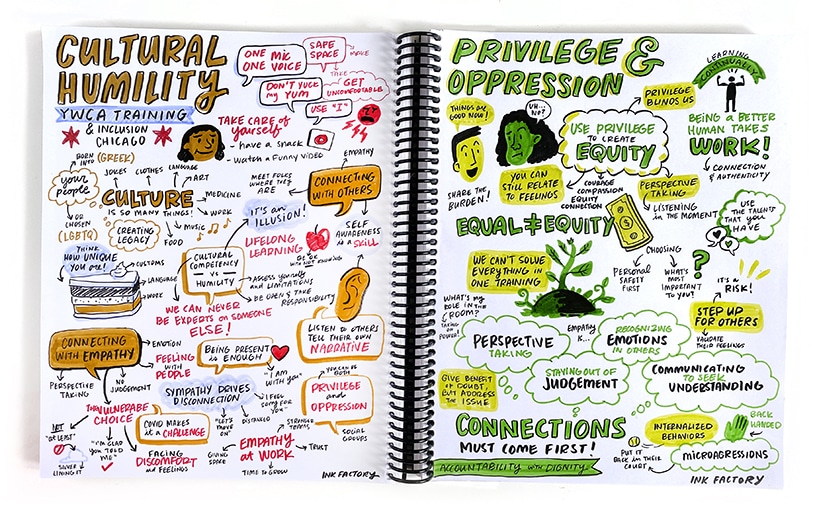 CULTURAL
HUMILITY
YWCA TRAINING
& INCLUSION
CHICAGO
ONE MIC
ONE VOICE
SAFE
SPACE
MAKE
TAKE
DON'T YUCK
my YUM
GET
UNCOMFORTABLE
USE "I"
TAKE CARE of
yourself
- have a snack
- watch a funny video
BORN
INTO
(GREEK)
your
people
OR
CHOSEN
(LGBTQ)
JOKES
CLOTHES
LANGUAGE
ART
CULTURE
IS SO MANY THINGS!
MEDICINE
WORK
MUSIC
FOOD
CREATING
LEGACY
MEET FOLKS
WHERE THEY
ARE
EMPATHY
CONNECTING
WITH OTHERS
IT'S an
ILLUSION!
SELF
AWARENESS
is a SKILL
THINK
HOW UNIQUE
YOU are!
CUSTOMS
LANGUAGE
WORK
CULTURAL
COMPETENCY
VS
HUMILITY
LIFELONG
LEARNING
BE OK
WITH NOT KNOWING
ASSESS yourself
and LIMITATIONS
BE OPEN & TAKE
RESPONSIBILITY
WE CAN NEVER
BE EXPERTS on SOMEONE
ELSE!
LISTEN to OTHERS
TELL THEIR OWN
NARRATIVE
CONNECTING
WITH EMPATHY
EMOTION
FEELING
WITH
PEOPLE
PERSPECTIVE
TAKING
NO
JUDGEMENT
BEING PRESENT
is ENOUGH
"I AM
WITH YOU"
SYMPATHY DRIVES
DISCONNECTION
"LET'S
MOVE
ON"
DISTANCED
"I FEEL
SORRY FOR
YOU"
YOU CAN BE
BOTH
PRIVILEGE
and
OPPRESSION
SOCIAL
GROUPS
THE VULNERABLE
CHOICE
NOT
"AT LEAST"
SILVER
LINING IT
"I'M GLAD
YOU TOLD
ME"
COVID MAKES
it a CHALLENGE
FACING
DISCOMFORT
and FEELINGS
EMPATHY
at WORK
STRONGER
TEAMS
TRUST
GIVING
SPACE
TIME TO GROW
INK FACTORY
PRIVILEGE &
OPPRESSION
LEARNING
CONTINUALLY
THINGS are
GOOD NOW!
UH...
NO?
PRIVILEGE
BLINDS US
USE PRIVILEGE
TO CREATE
EQUITY
BEING a BETTER
HUMAN TAKES
WORK!
CONNECTION
& AUTHENTICITY
SHARE THE
BURDEN!
YOU CAN
STILL RELATE
TO FEELINGS
COURAGE
COMPASSION
EQUITY
CONNECTION
PERSPECTIVE
TAKING
LISTENING
in the MOMENT
USE THE
TALENTS THAT
YOU HAVE
EQUAL ≠ EQUITY
WE CAN'T SOLVE
EVERYTHING IN
ONE TRAINING
CHOOSING
PERSONAL
SAFETY
FIRST
WHAT'S
MOST
IMPORTANT
TO YOU?
IT'S a
RISK!
STEP UP
FOR OTHERS
VALIDATE
THEIR FEELINGS
WHAT'S my
ROLE IN THE
ROOM?
TAKING
on POWER!
PERSPECTIVE
TAKING
EMPATHY
is...
RECOGNIZING
EMOTIONS
IN OTHERS
STAYING OUT OF
JUDGEMENT
COMMUNICATING
TO SEEK
UNDERSTANDING
GIVE BENEFIT
of DOUBT,
BUT ADDRESS
the ISSUE
CONNECTIONS
MUST COME FIRST!
ACCOUNTABILITY with DIGNITY
INTERNALIZED
BEHAVIORS
BACK
HANDED
PUT IT
BACK in THEIR
COURT
MICROAGRESSIONS
INK FACTORY